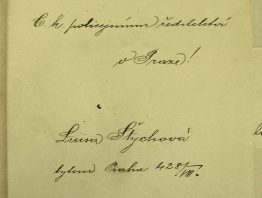 C. k. policejnímu ředitelství
v Praze!
Luisa Štychová
bytem Praha 428/VIII.